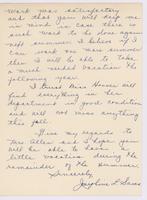 work was satisfactory
and that you will keep me
in mind in case there is
such work to be done again
next summer. I believe if I
can work one more summer
then I will be able to take
a much needed vacation the
following year.
I trust Miss Howes will
find everything in her
department in good condition
and will not miss anything
this fall.
Give my regards to
Mrs. Allen and I hope you
will be able to have a
little vacation during the
remainder of the summer.
Sincerely,
Josephine L.